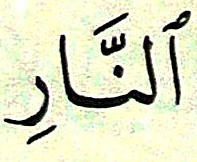 ٱلنَّارِ